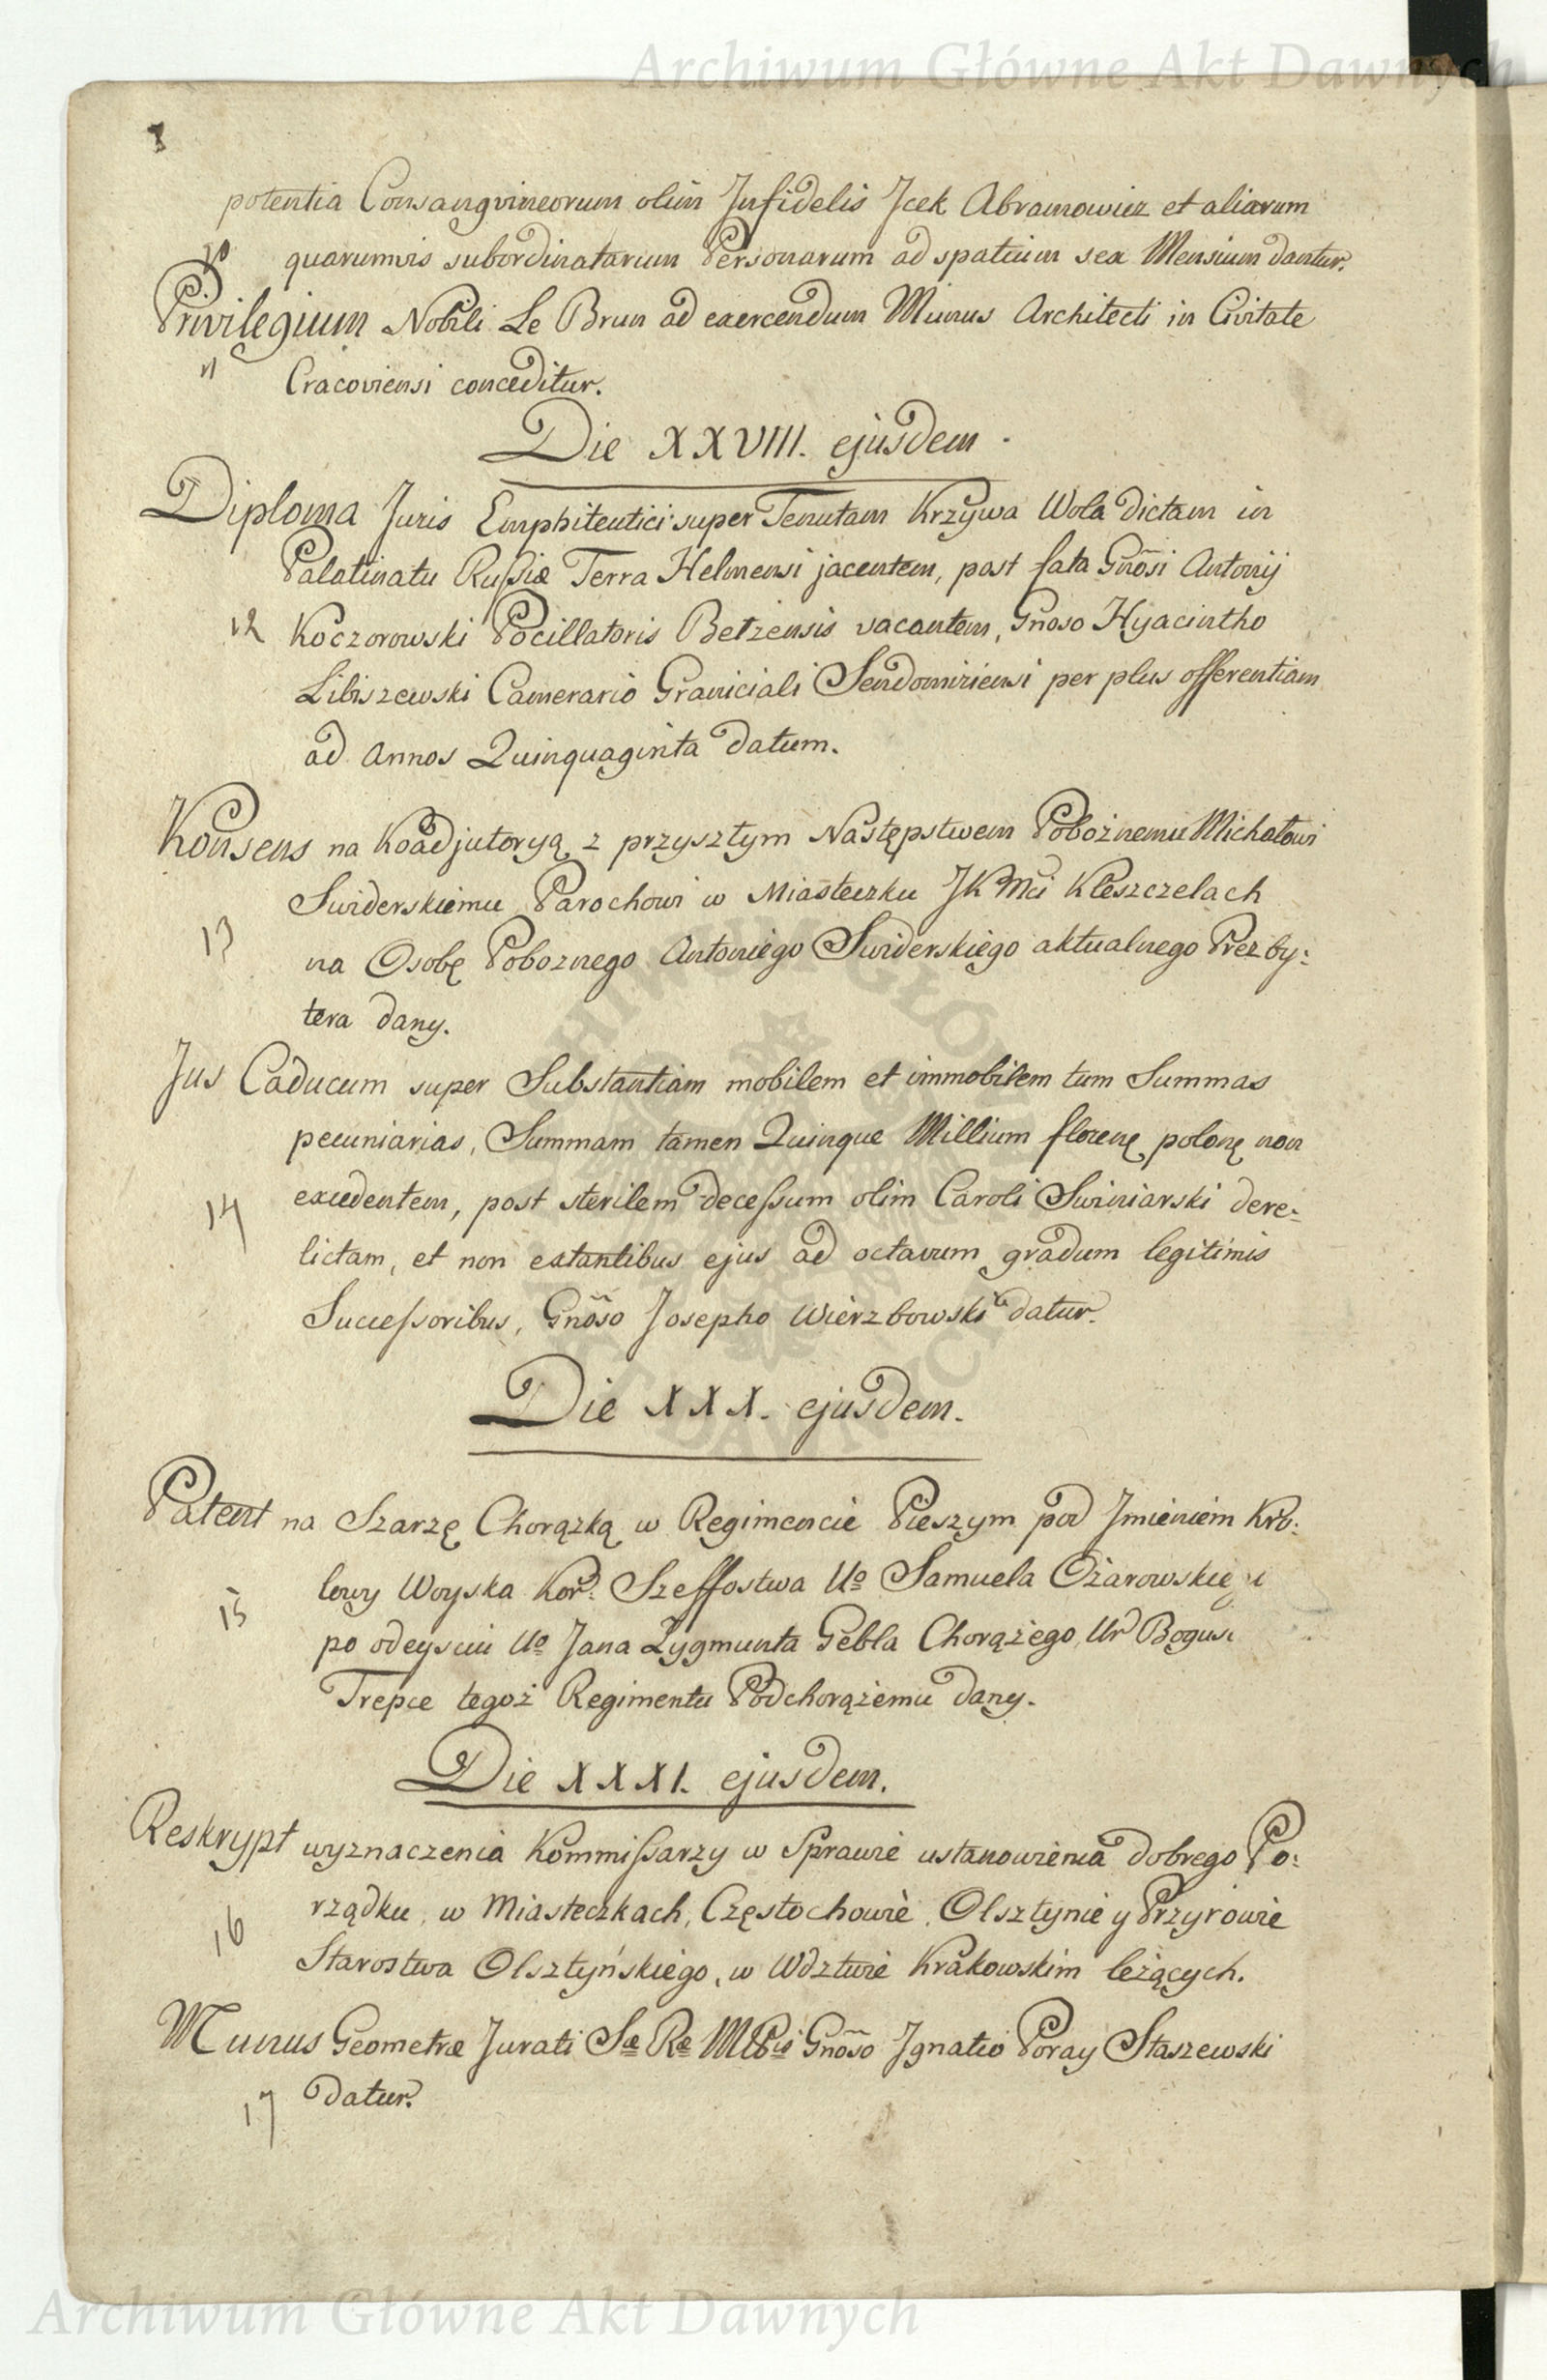 Archiwum Główne Akt Dawnych
8
potentia Consangvineorum olim Jnfidelis Jcek Abramowicz et aliarum
10 quarumvis subordinatarum Personarum ad spatium sex Mensium dantur.
Privilegium Nobili Le Brun ad exercendum Munus Architecti in Civitate
11 Cracoviensi conceditur.
Die XXVIII. ejusdem.
Diploma Juris Emphiteutici super Tenutam Krzywa Wola dictam in
Palatinatu Russiæ Terra Helmensi jacentem, post fata Gnõsi Antonij
12 Koczorowski Pocillatoris Betzensis vacantem, Gnoso Hyacintho
Libiszewski Camerario Graniciali Sendomiriensi per plus offerentiam
ad Annos Quinquaginta datum.
Konsens na Koadjutoryą z przysztym Następstwem Pobożnemu Michałowi
Swiderskiemu Parochowi w Miasteczku JK Mci Kleszczelach
13 na Osobę Poboznego Antoniego Swiderskiego aktualnego Prezby:
tera dany.
Jus Caducum super Substantiam mobilem et immobilem tum Summas
pecuniarias, Summam tamen Quinque Millium florenę polonę non
14 excedentem, post sterilem decessum olim Caroli Swiniarski dere:
lictam, et non extantibus ejus ad octavum gradum legitimis
Successoribus, Gnõso Josepho Wierzbowski datur.
Die XXX. ejusdem.
Patent na Szarzę Chorązką w Regimencie Pieszym pod Jmieniem Kro:
lowy Woyska Kor: Szeffostwa Uo Samuela Ożarowskieg
15 po odeysciu Uo Jana Zygmunta Gebla Chorążego, Ur Bogus
Trepce tegoż Regimentu Podchorążemu dany.
Die XXXI. ejusdem.
Reskrypt wyznaczenia Kommissarzy w Sprawie ustanowienia dobrego Po:
16 rządku, w Miasteczkach, Częstochowie, Olsztynie y Przyrowie
Starostwa Olsztyńskiego, w Wdztwie Krakowskim leżących.
Munus Geometræ Jurati Sæ Ræ Mttis Gnõso Jgnatio Poray Staszewski
17 datur.
Archiwum Główne Akt Dawnych